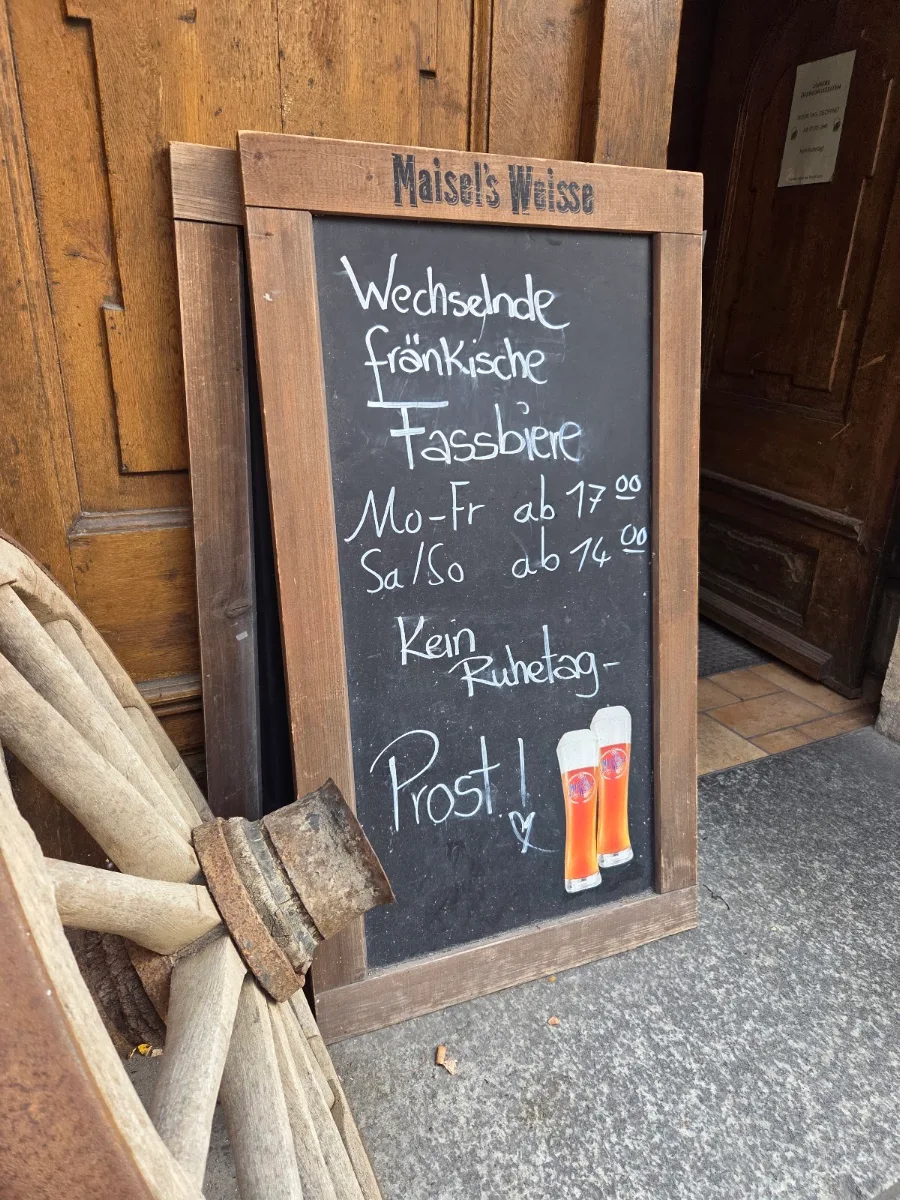 Maisel's Weisse
Wechselnde
fränkische
Fassbiere
Mo-Fr ab 17 00
Sa/So ab 14 00
Kein
Ruhetag-
Prost!